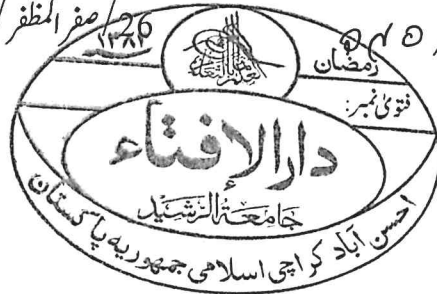 26/صفر المظفر
۱۳۸۳
رمضان
فتویٰ نمبر:
دارالإفتاء
جَامِعَةُ الرَّشِيد
احسن آباد کراچی اسلامی جمہوریہ پاکستان